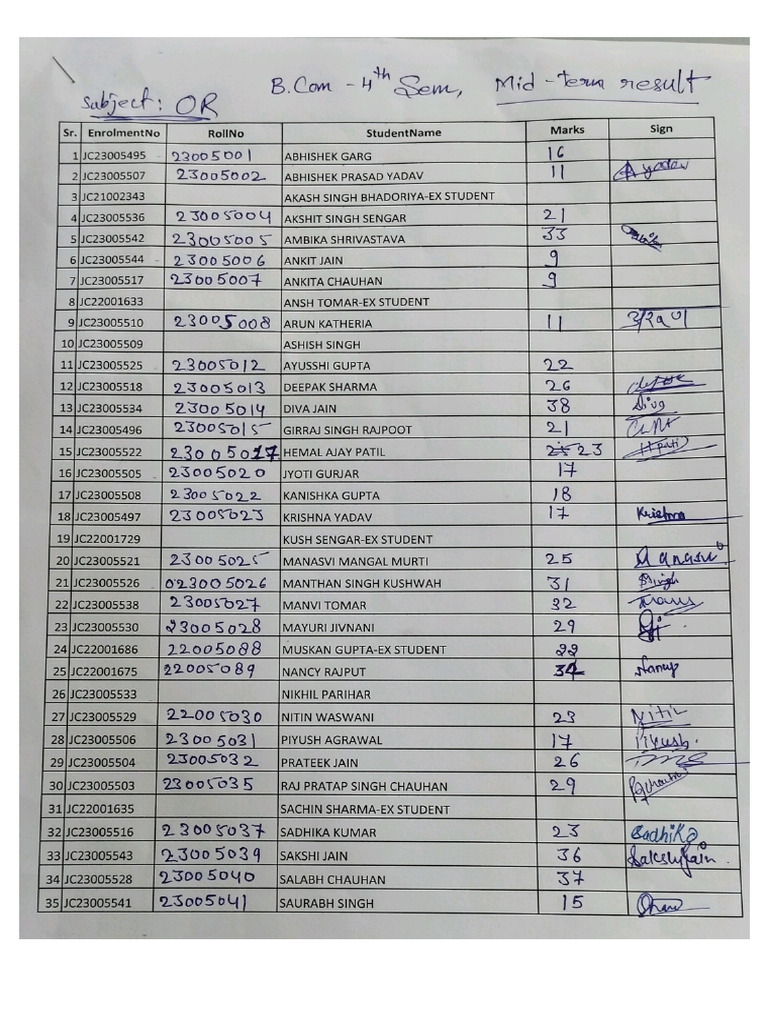 B.Com - 4th Sem, Mid-term result
Subject: OR
Sr. EnrolmentNo RollNo StudentName Marks Sign
1 JC23005495 23005001 ABHISHEK GARG 16
2 JC23005507 23005002 ABHISHEK PRASAD YADAV 11 A yadav
3 JC21002343 AKASH SINGH BHADORIYA-EX STUDENT
4 JC23005536 23005004 AKSHIT SINGH SENGAR 21
5 JC23005542 23005005 AMBIKA SHRIVASTAVA 33
6 JC23005544 23005006 ANKIT JAIN 9
7 JC23005517 23005007 ANKITA CHAUHAN 9
8 JC22001633 ANSH TOMAR-EX STUDENT
9 JC23005510 23005008 ARUN KATHERIA 11
10 JC23005509 ASHISH SINGH
11 JC23005525 23005012 AYUSSHI GUPTA 22
12 JC23005518 23005013 DEEPAK SHARMA 26
13 JC23005534 23005014 DIVA JAIN 38 Diva
14 JC23005496 23005015 GIRRAJ SINGH RAJPOOT 21
15 JC23005522 23005017 HEMAL AJAY PATIL 23
16 JC23005505 23005020 JYOTI GURJAR 17
17 JC23005508 23005022 KANISHKA GUPTA 18
18 JC23005497 23005023 KRISHNA YADAV 17 Krishna
19 JC22001729 KUSH SENGAR-EX STUDENT
20 JC23005521 23005025 MANASVI MANGAL MURTI 25 Manasvi
21 JC23005526 023005026 MANTHAN SINGH KUSHWAH 31
22 JC23005538 23005027 MANVI TOMAR 32
23 JC23005530 23005028 MAYURI JIVNANI 29
24 JC22001686 22005088 MUSKAN GUPTA-EX STUDENT 22
25 JC22001675 22005089 NANCY RAJPUT 34
26 JC23005533 NIKHIL PARIHAR
27 JC23005529 22005030 NITIN WASWANI 23 Nitin
28 JC23005506 23005031 PIYUSH AGRAWAL 17 Piyush.
29 JC23005504 23005032 PRATEEK JAIN 26
30 JC23005503 23005035 RAJ PRATAP SINGH CHAUHAN 29
31 JC22001635 SACHIN SHARMA-EX STUDENT
32 JC23005516 23005037 SADHIKA KUMAR 23 Sadhika
33 JC23005543 23005039 SAKSHI JAIN 36 Sakshi Jain.
34 JC23005528 23005040 SALABH CHAUHAN 37
35 JC23005541 23005041 SAURABH SINGH 15